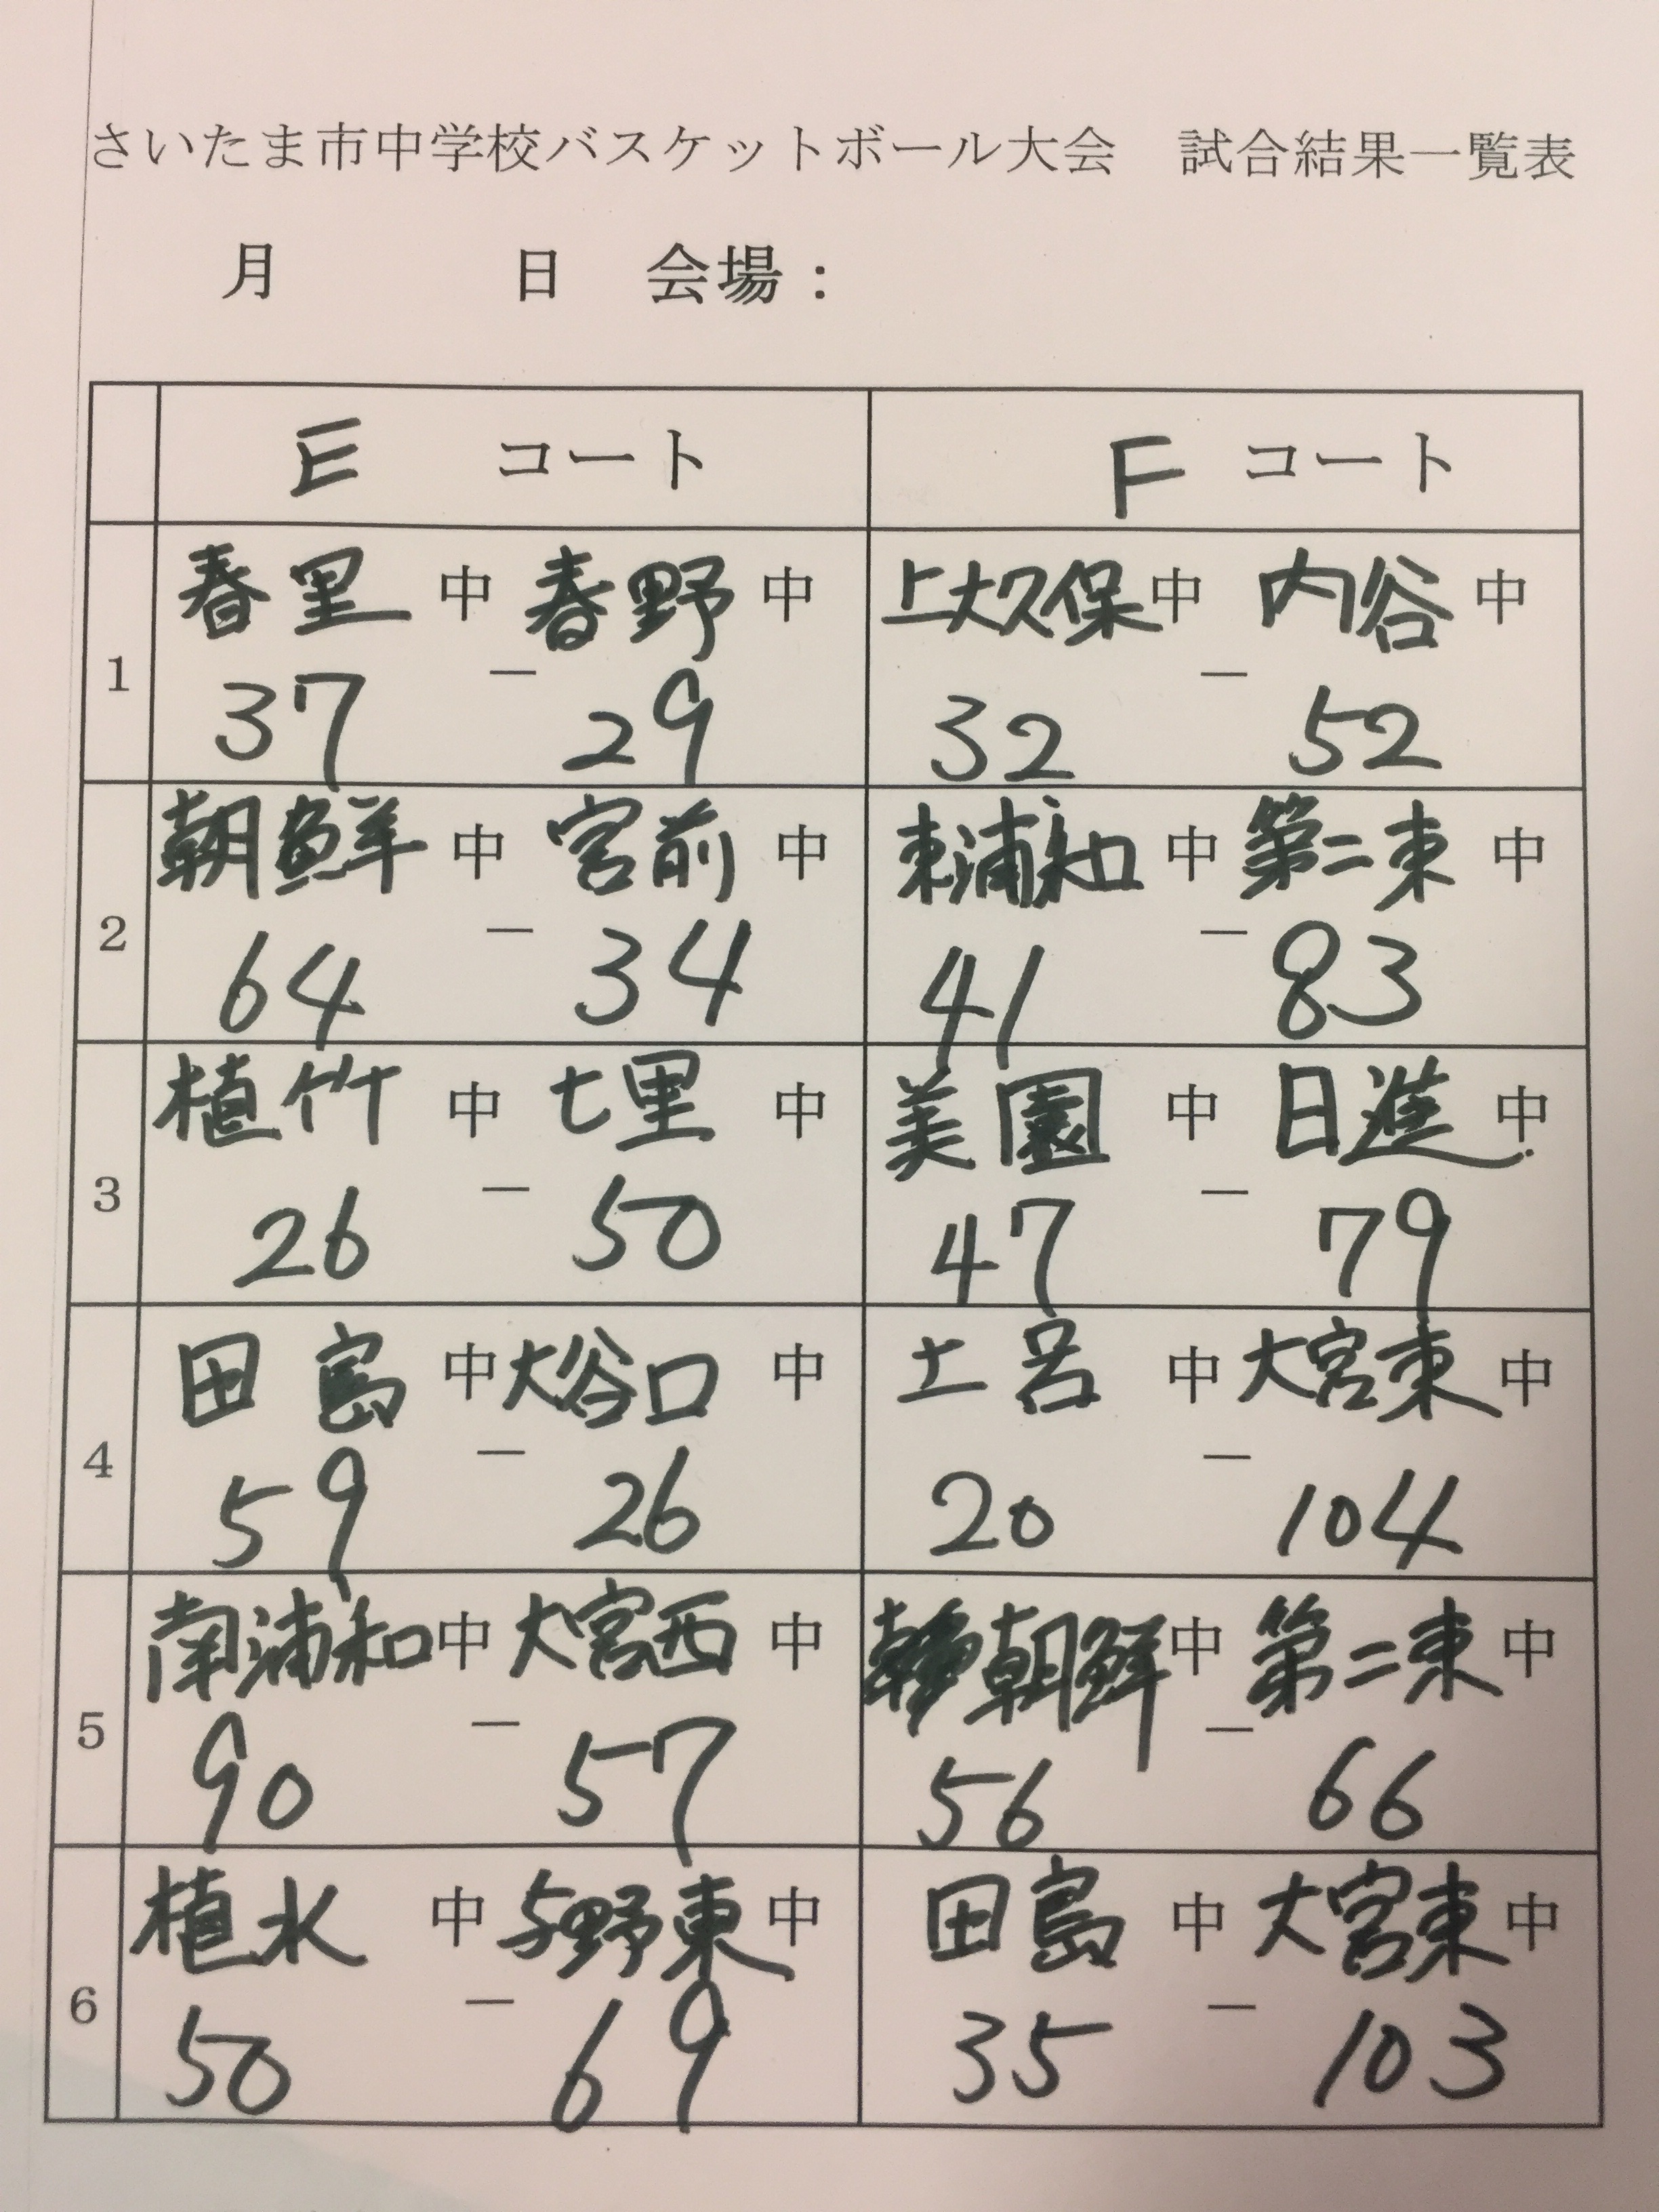 さいたま市中学校バスケットボール大会　試合結果一覧表
月　日　会場：
E コート　F コート
1 春里中 － 春野中　上大久保中 － 内谷中
37　29　32　52
2 朝鮮中 － 宮前中　東浦和中 － 第二東中
64　34　41　83
3 植竹中 － 七里中　美園中 － 日進中
26　50　47　79
4 田島中 － 大谷口中　土呂中 － 大宮東中
59　26　20　104
5 南浦和中 － 大宮西中　朝鮮中 － 第二東中
90　57　56　66
6 植水中 － 与野東中　田島中 － 大宮東中
50　69　35　103